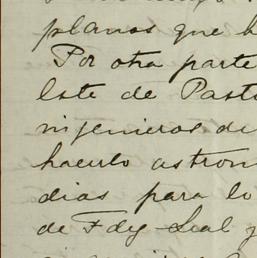 planos que h
Por otra parte
este de Past
ingenieros de
hacerlo astron
dias para lo
de Fdy Seal y